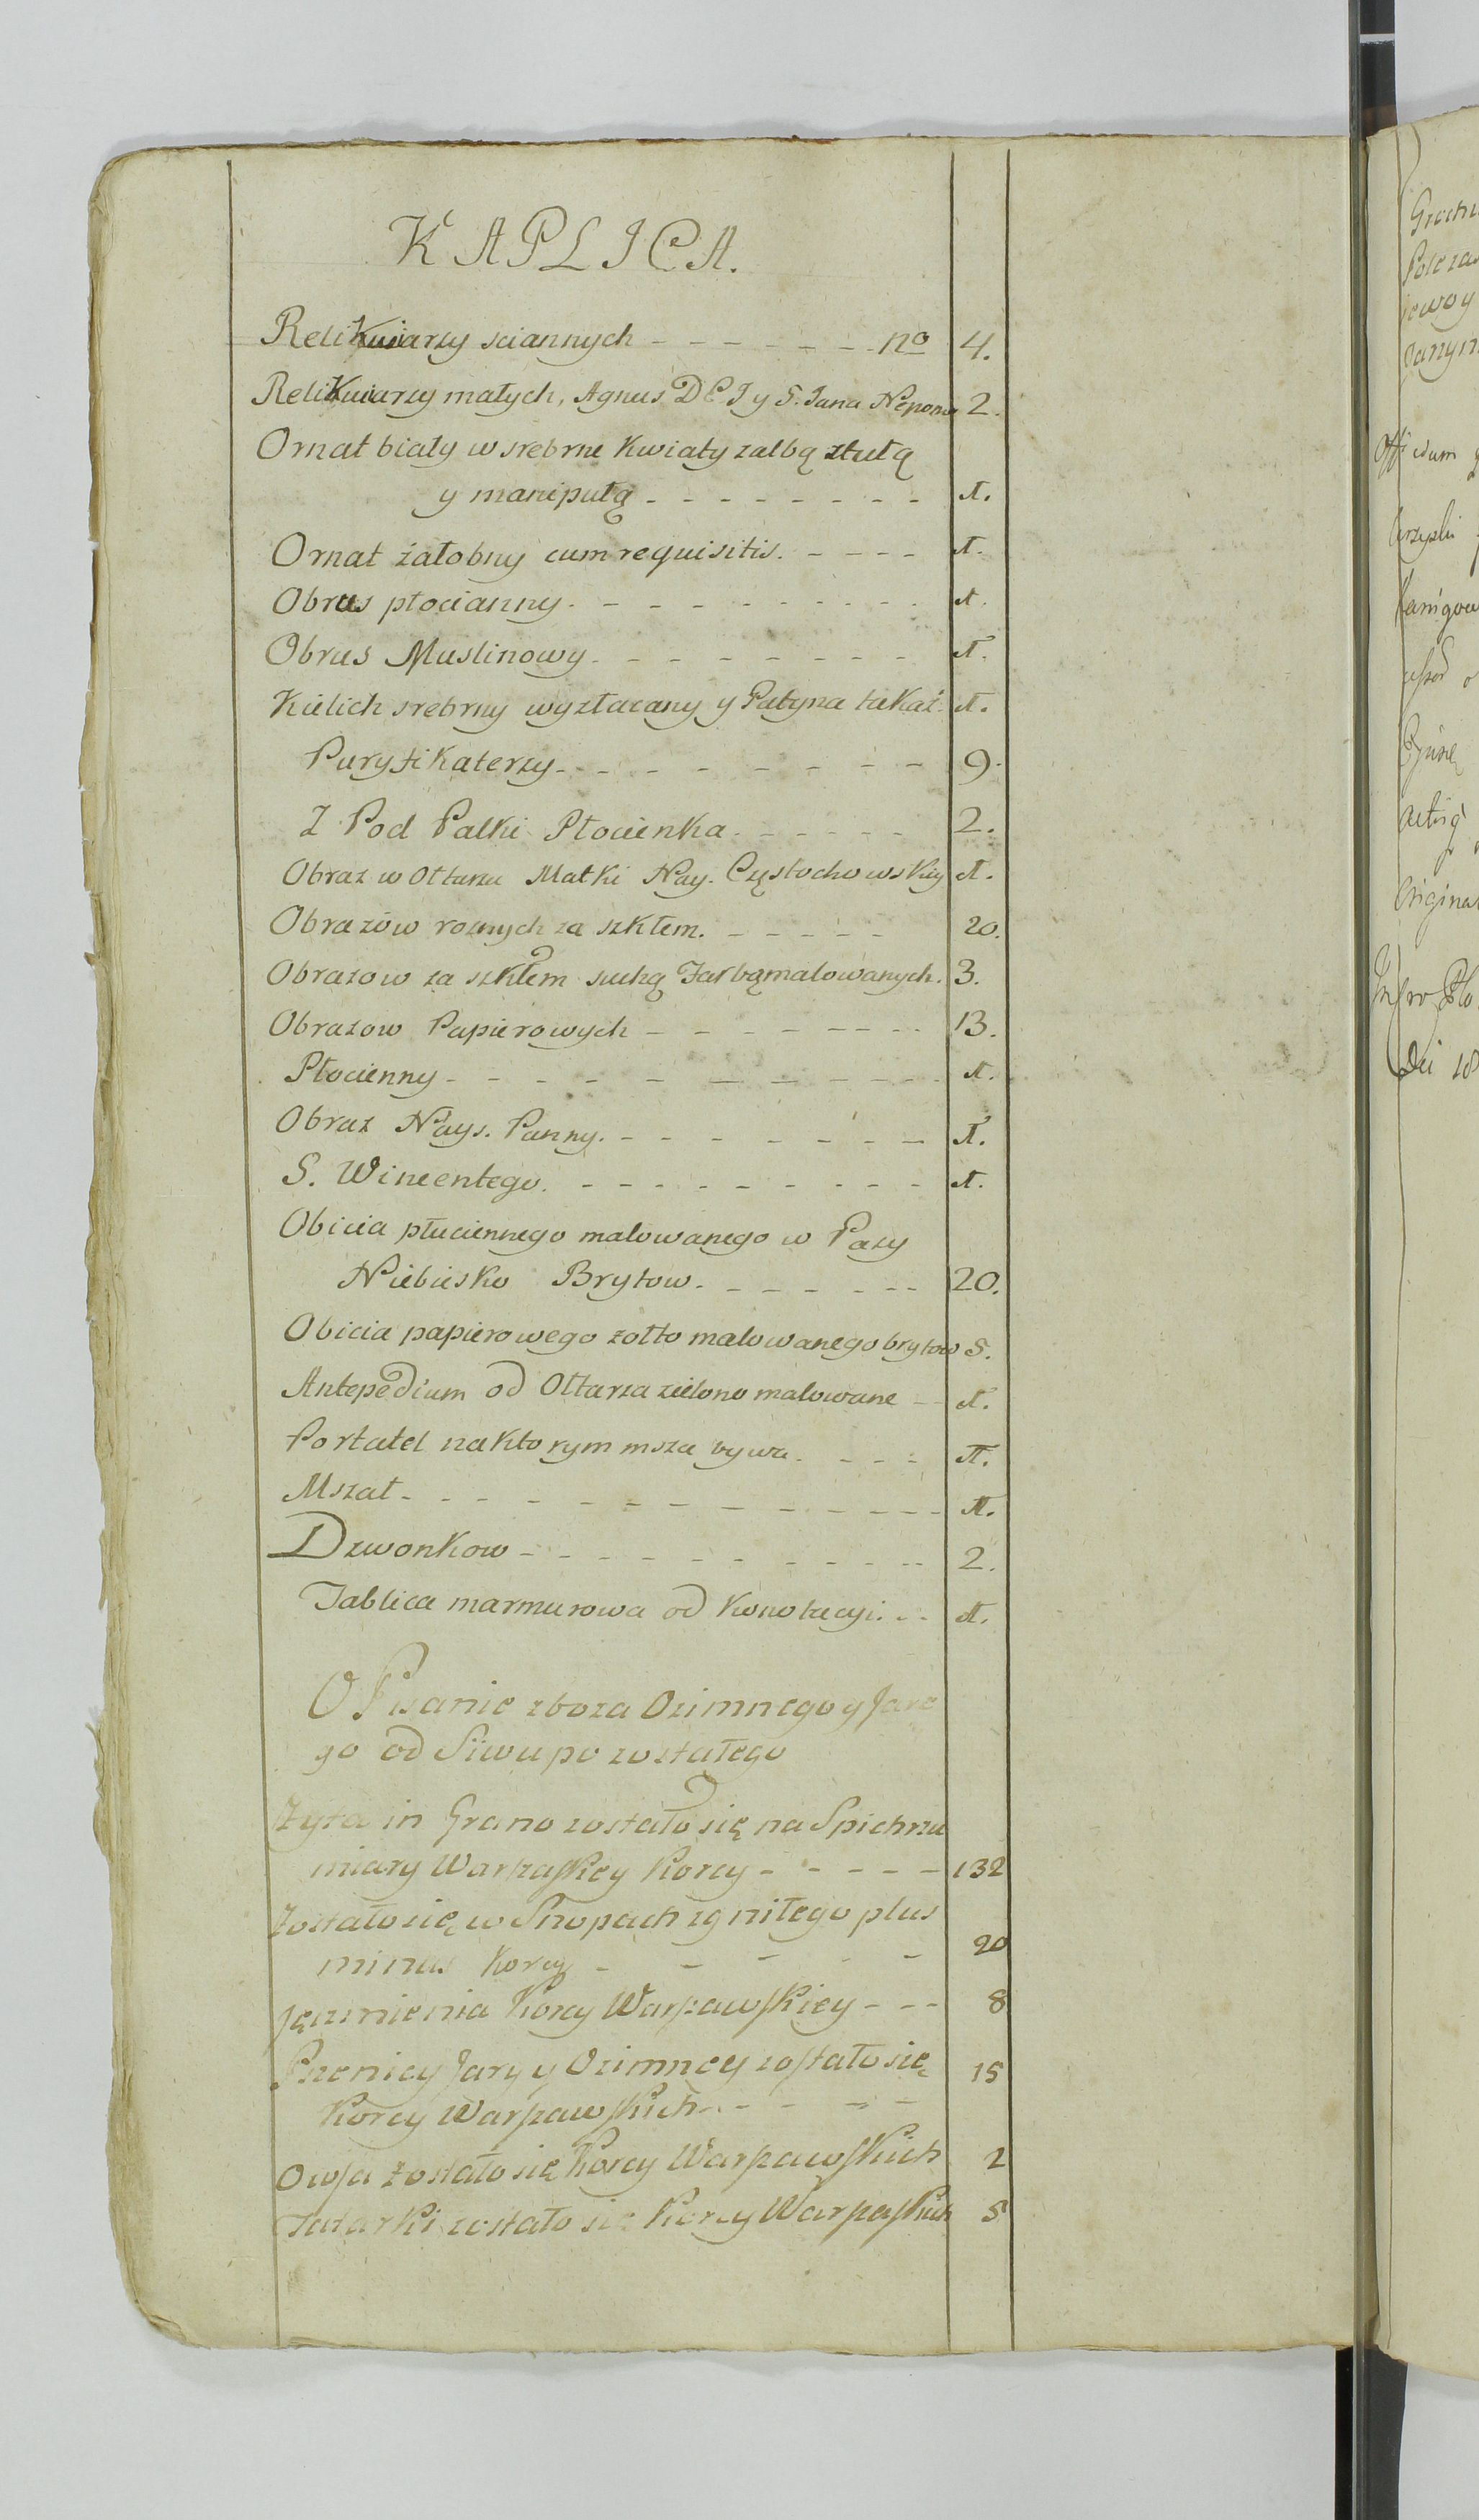 KAPLICA.
Relikwiarzy sciannych - - - - - - - no 4.
Relikwiarzy małych, Agnus DEI y S. Jana Nepomu 2.
Ornat biały w srebrne Kwiaty zalbą ztułą
y manipułą - - - - - - - - 1.
Ornat żałobny cum requisitis. - - - - 1.
Obrus płocianny. - - - - - - - - 1.
Obrus Muslinowy. - - - - - - - - 1.
Kielich srebrny wyzłacany y Patyna takaż. 1.
Puryfikaterzy - - - - - - - - 9.
Z Pod Palki Płocienka. - - - - - 2.
Obraz w Ołtarzu Matki Nay. Częstochowskiey 1.
Obrazów roznych za szkłem. - - - - - 20.
Obrazow za szkłem suchą Farbą malowanych. 3.
Obrazow Papierowych - - - - - - - - 13.
Płocienny - - - - - - - - - - 1.
Obraz Nays. Panny. - - - - - - - 1.
S. Wincentego. - - - - - - - - - 1.
Obicia płuciennego malowanego w Pasy
Niebiesko Brytow. - - - - - - 20.
Obicia papierowego zołto malowanego brytow 5.
Antepedium od Ołtarza zielono malowane - - 1.
Portatel na Ktorym msza bywa. - - - 1.
Mszał - - - - - - - - - - - - 1.
Dzwonkow - - - - - - - - - - 2.
Tablica marmurowa od Konotacyi. - - 1.
OPisanie zboza Ozimnego y Jare
go od Siwu pozostałego
Zyta in Grano zostało się na Spichrzu
miary Warszaskiey Korcy - - - - - 132
Zostało się w Snopach zgniłego plus
minus Korcy - - - - - 20
Jęczmienia Korcy Warszawskiey - - - 8
Pszenicy Jary y Ozimney zostało się 15
Korcy Warszawskich - - - - -
Owsa zostało się Korcy Warszawskich 2
Tatarki zostało się Korcy Warszaskich 5